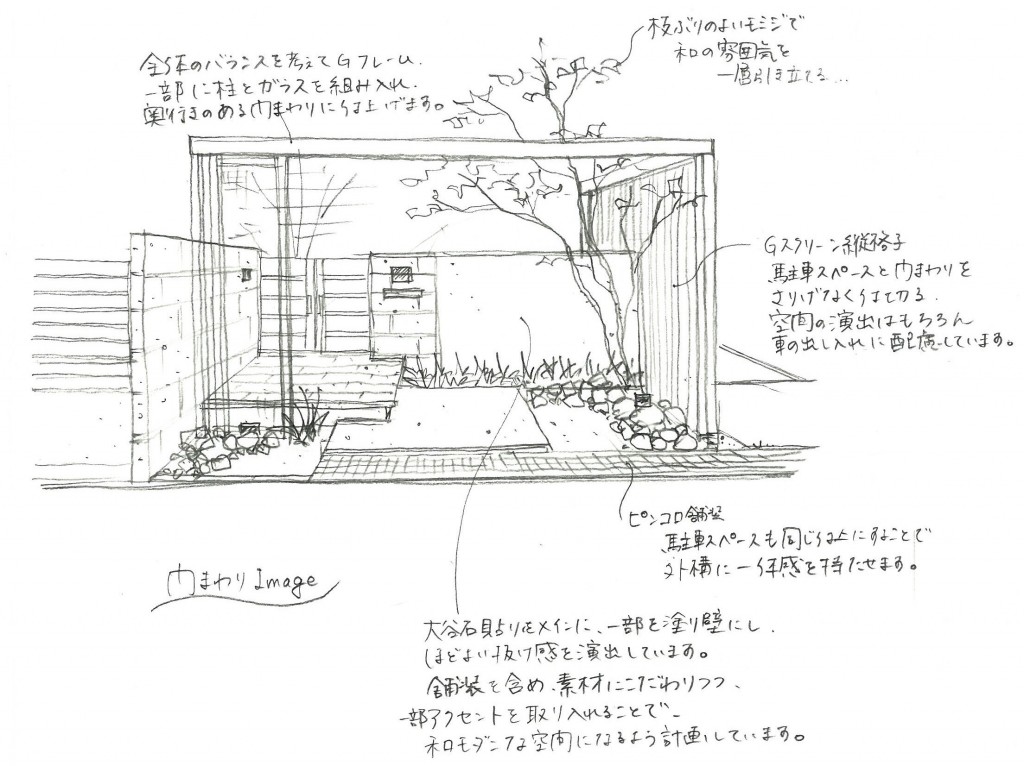 枝ぶりのよいモミジで
和の雰囲気を
一層引き立てる...
全体のバランスを考えてGフレーム、
一部に柱とガラスを組み入れ、
奥行きのある門まわりに仕上げます。
Gスクリーン縦格子
駐車スペースと門まわりを
さりげなく仕切る、
空間の演出はもちろん
車の出し入れに配慮しています。
ピンコロ舗装
駐車スペースも同じ仕上にすることで
外構に一体感を持たせます。
門まわりImage
大谷石貼りをメインに、一部を塗り壁にし、
ほどよい抜け感を演出しています。
舗装を含め、素材にこだわりつつ、
一部アクセントを取り入れることで、
和モダンな空間になるよう計画しています。